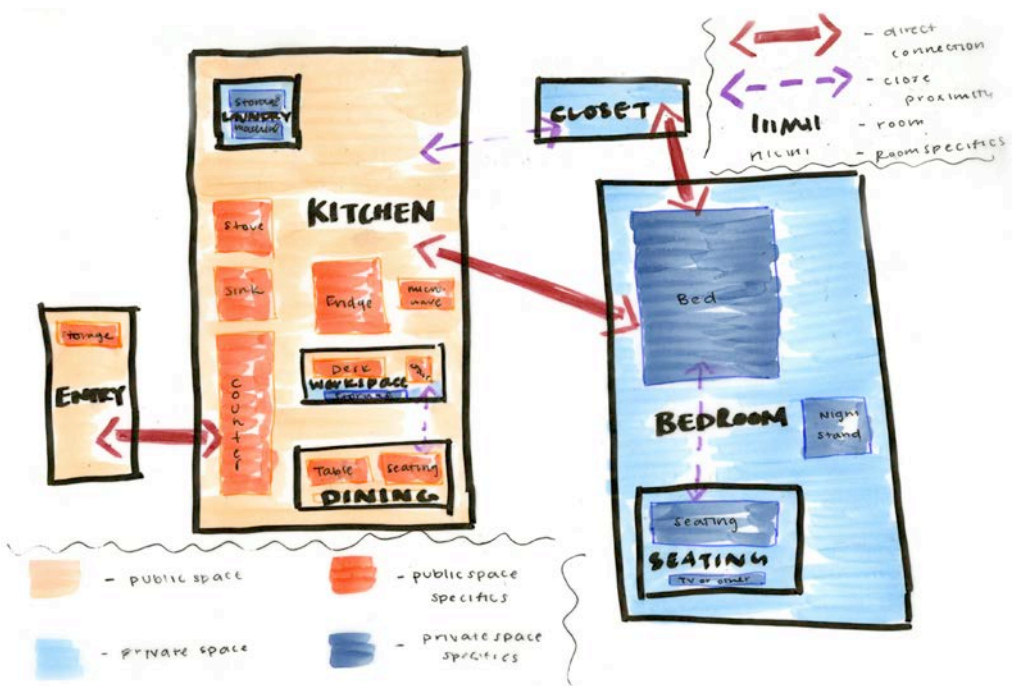 direct
connection
close
proximity
room
Room specifics
Storage
LAUNDRY
machine
CLOSET
KITCHEN
Stove
Sink
Fridge
micro
wave
Storage
ENTRY
counter
Desk
WORKSPACE
Storage
Table
Seating
DINING
Bed
BEDROOM
Night
Stand
Seating
SEATING
TV or other
public space
public space
specifics
private space
private space
specifics